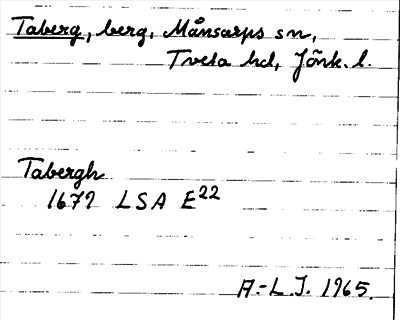 Taberg, berg, Månsarps sn,
Tveta hd, Jönk. l.
Tabergh
1679 LSA E22
A-L.J. 1965.